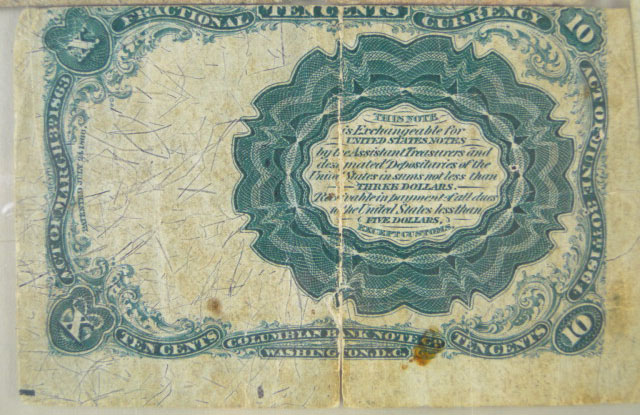 FRACTIONAL TEN CENTS CURRENCY
X
10
ACT OF MARCH 3RD 1863
ACT OF JUNE 30TH 1864
THIS NOTE
is Exchangeable for
UNITED STATES NOTES
by the Assistant Treasurers and
designated Depositaries of the
United States in sums not less than
THREE DOLLARS.
Receivable in payment of all dues
to the United States less than
FIVE DOLLARS,
EXCEPT CUSTOMS.
X
10
TEN CENTS
COLUMBIAN BANK NOTE CO.
TEN CENTS
WASHINGTON, D.C.